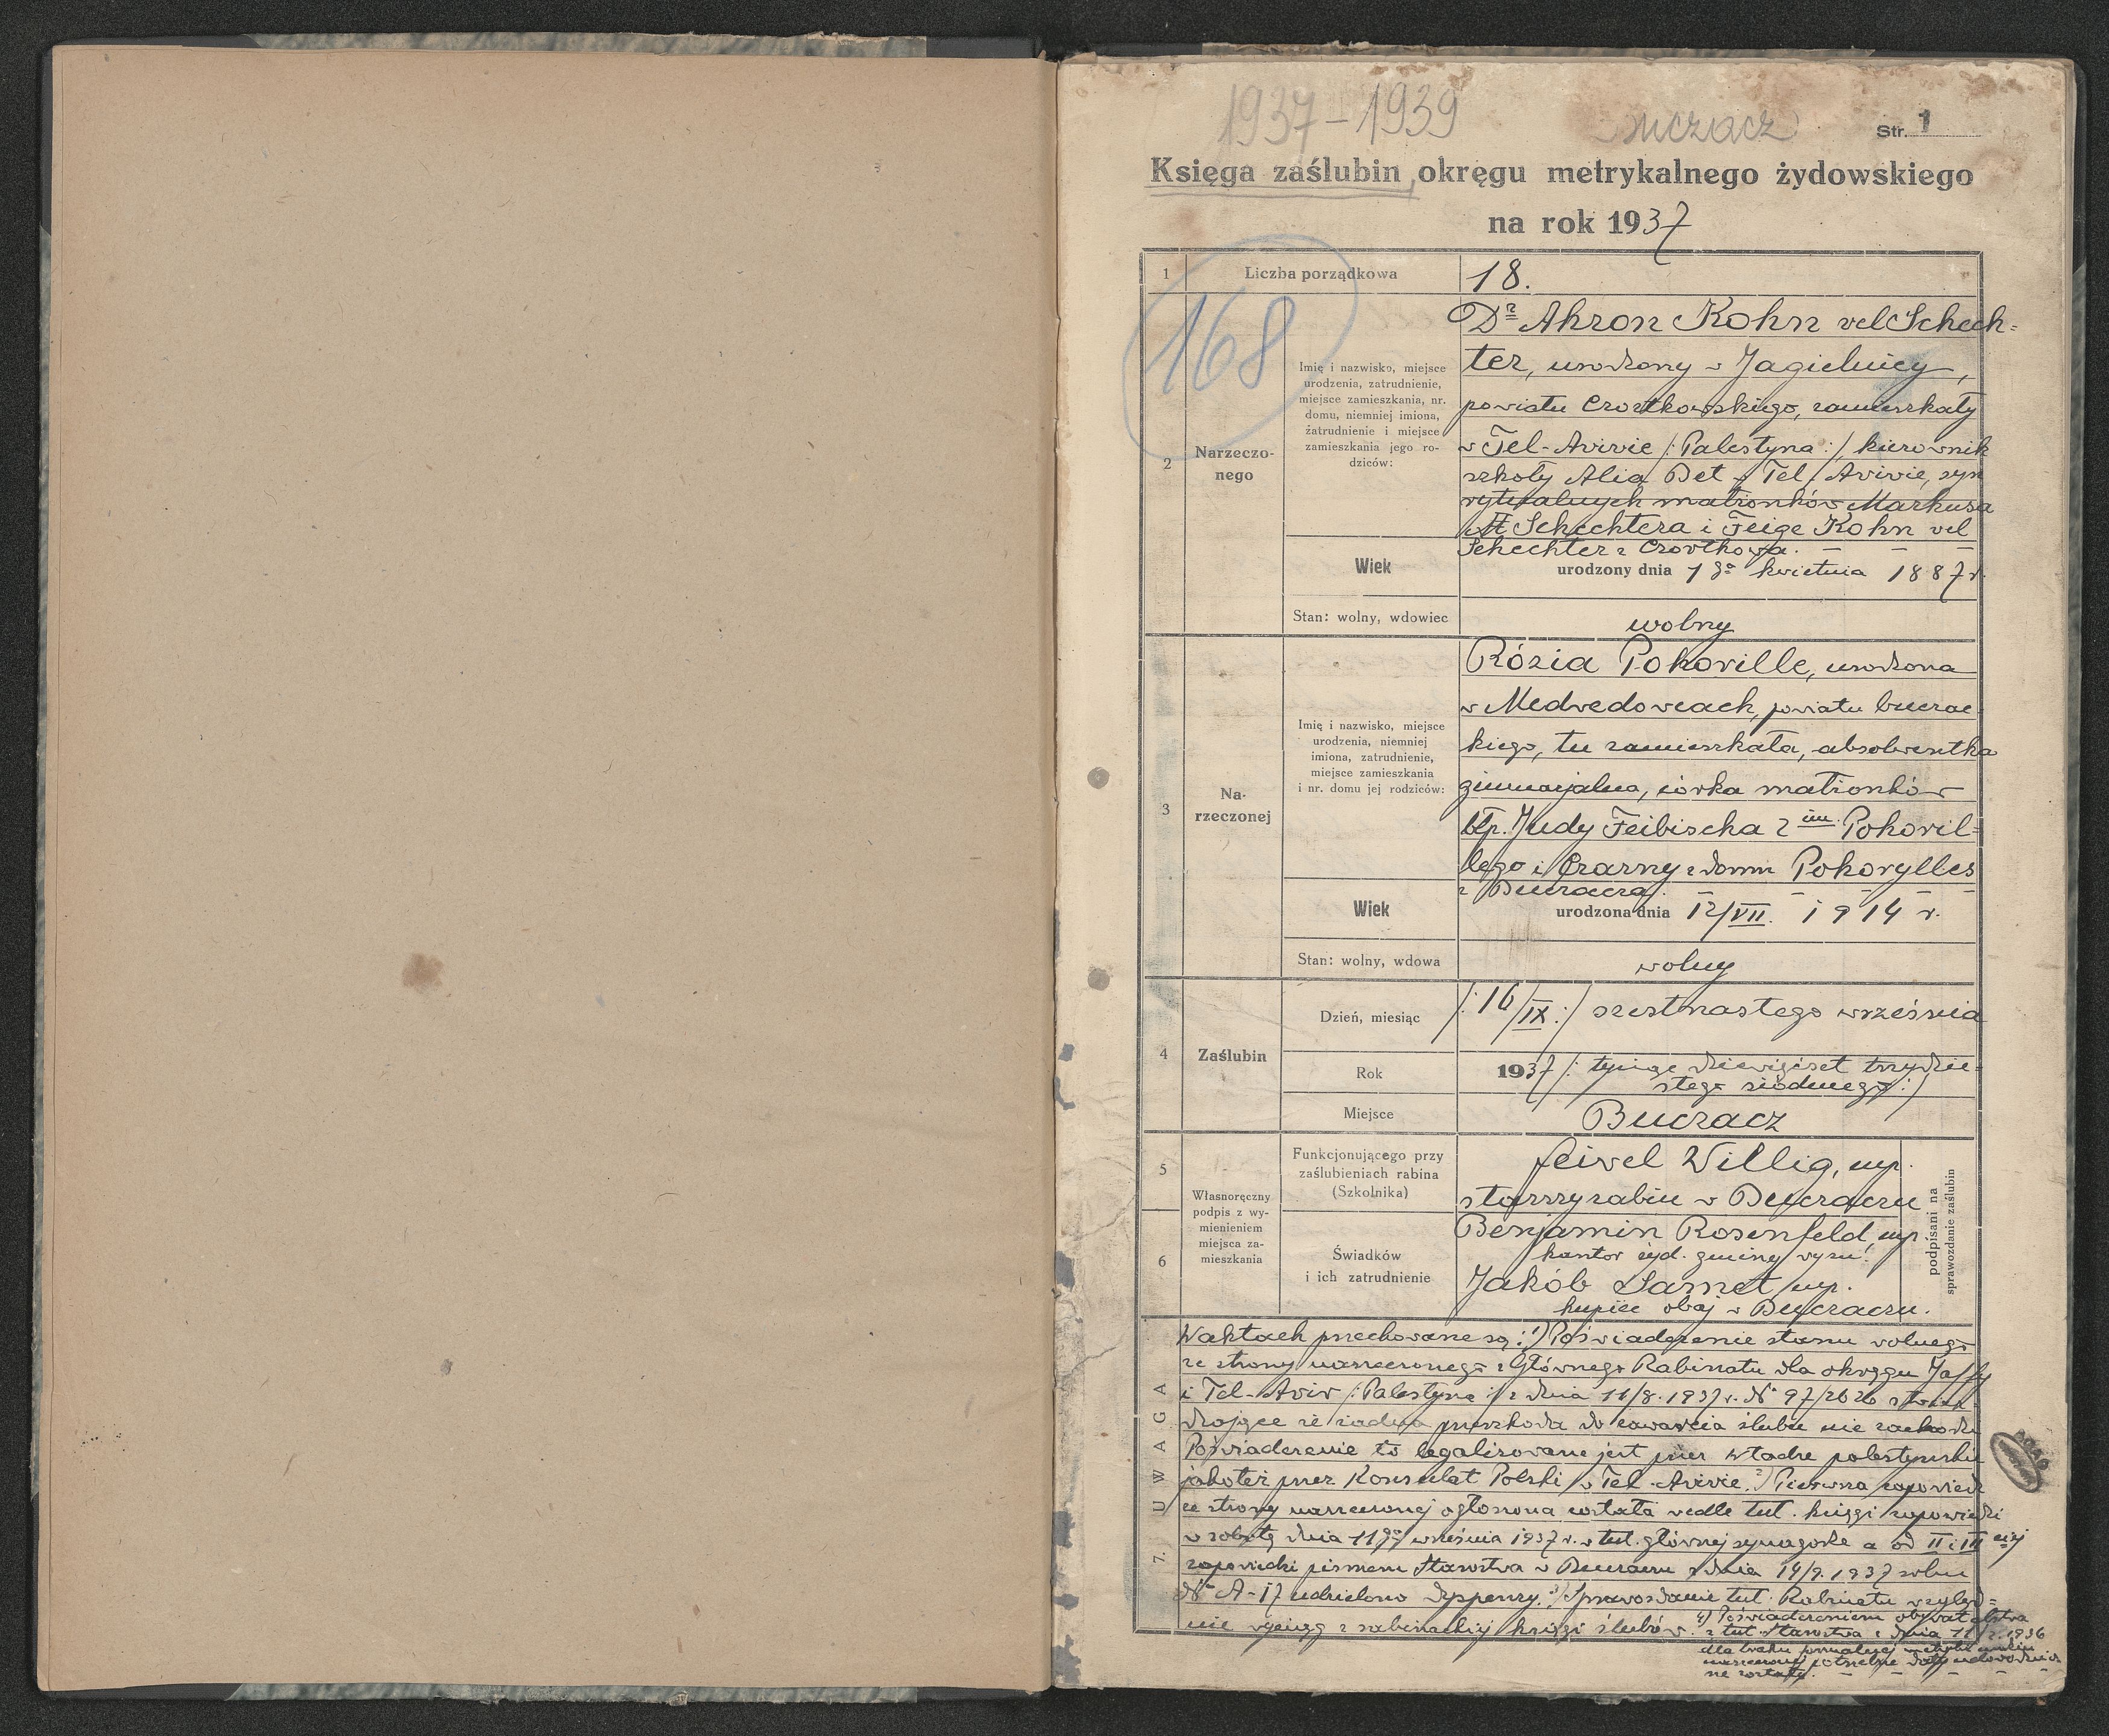 1937-1939
Str. 1
Księga zaślubin okręgu metrykalnego żydowskiego
na rok 1937
168
1
Liczba porządkowa
18.
2
Narzeczo-
nego
Imię i nazwisko, miejsce
urodzenia, zatrudnienie,
miejsce zamieszkania, nr.
domu, niemniej imiona,
zatrudnienie i miejsce
zamieszkania jego ro-
dziców:
Dr Ahron Kohn vel Schech=
ter, urodzony w Jagielnicy,
powiatu Czortkowskiego, zamieszkały
w Tel-Avivie /:Palestyna:/ kierownik
szkoły Alia Bet w Tel Avivie, syn
rytualnych małżonków Markusa
Schechtera i Feige Kohn vel
Schechter z Czortkowa. – – –
Wiek
urodzony dnia 1 go kwietnia 1887 r.
Stan: wolny, wdowiec
wolny
3
Na-
rzeczonej
Imię i nazwisko, miejsce
urodzenia, niemniej
imiona, zatrudnienie,
miejsce zamieszkania
i nr. domu jej rodziców:
Rózia Pohorille, urodzona
w Medvedovcach, powiatu buczac=
kiego, tu zamieszkała, absolwentka
gimnazjalna, córka małżonków
błp. Judy Feibischa 2 im. Pohoril=
lego i Czarny z domu Pohorylles
z Buczacza. – – – –
Wiek
urodzona dnia 12/VII. 1914 r.
Stan: wolny, wdowa
wolny
4
Zaślubin
Dzień, miesiąc
/:16/IX:/ szestnastego września
Rok
1937 /: tysiąc dziewięćset trzydzie=
stego siódmego:/
Miejsce
Buczacz
5
Własnoręczny
podpis z wy-
mienieniem
miejsca za-
mieszkania
Funkcjonującego przy
zaślubieniach rabina
(Szkolnika)
Feivel Willig, mp.
starszy rabin w Buczaczu
6
Świadków
i ich zatrudnienie
Benjamin Rosenfeld, mp.
kantor żyd. gminy wyzn.
Jakób Sarnet mp.
kupiec obaj w Buczaczu.
podpisani na
sprawozdanie zaślubin
7. UWAGA
W aktach przechowane są: 1) Poświadczenie stanu wolnego
ze strony narzeczonego z Głównego Rabinatu dla okręgu Jaffy
i Tel-Aviv /:Palestyna:/ z dnia 11/8. 1937 r. № 97/2626
że żadna przeszkoda do zawarcia ślubu nie zachodzi
Poświadczenie to legalizowane jest przez władze palestyńskie
jakoteż przez Konsulat Polski w Tel-Avivie. 2) Pierwsza zapowiedź
ze strony narzeczonej ogłoszona została vedle tut. księgi zapowiedzi
w sobotę dnia 11go września 1937 r. w tut. głównej synagodze a od II i III
zapowiedzi pismem Starostwa w Buczaczu z dnia 14/9. 1937
№ A-17 udzielono dyspenzy. 3) Sprawozdanie tut. Rabinatu względ=
nie wyciąg z rabinackiej księgi ślubów. 4) Poświadczeniem obywatelstwa
z tut. Starostwa z dnia 1936
dla braku
narzeczonej potrzebne daty udowodnio
ne zostały. – – – –